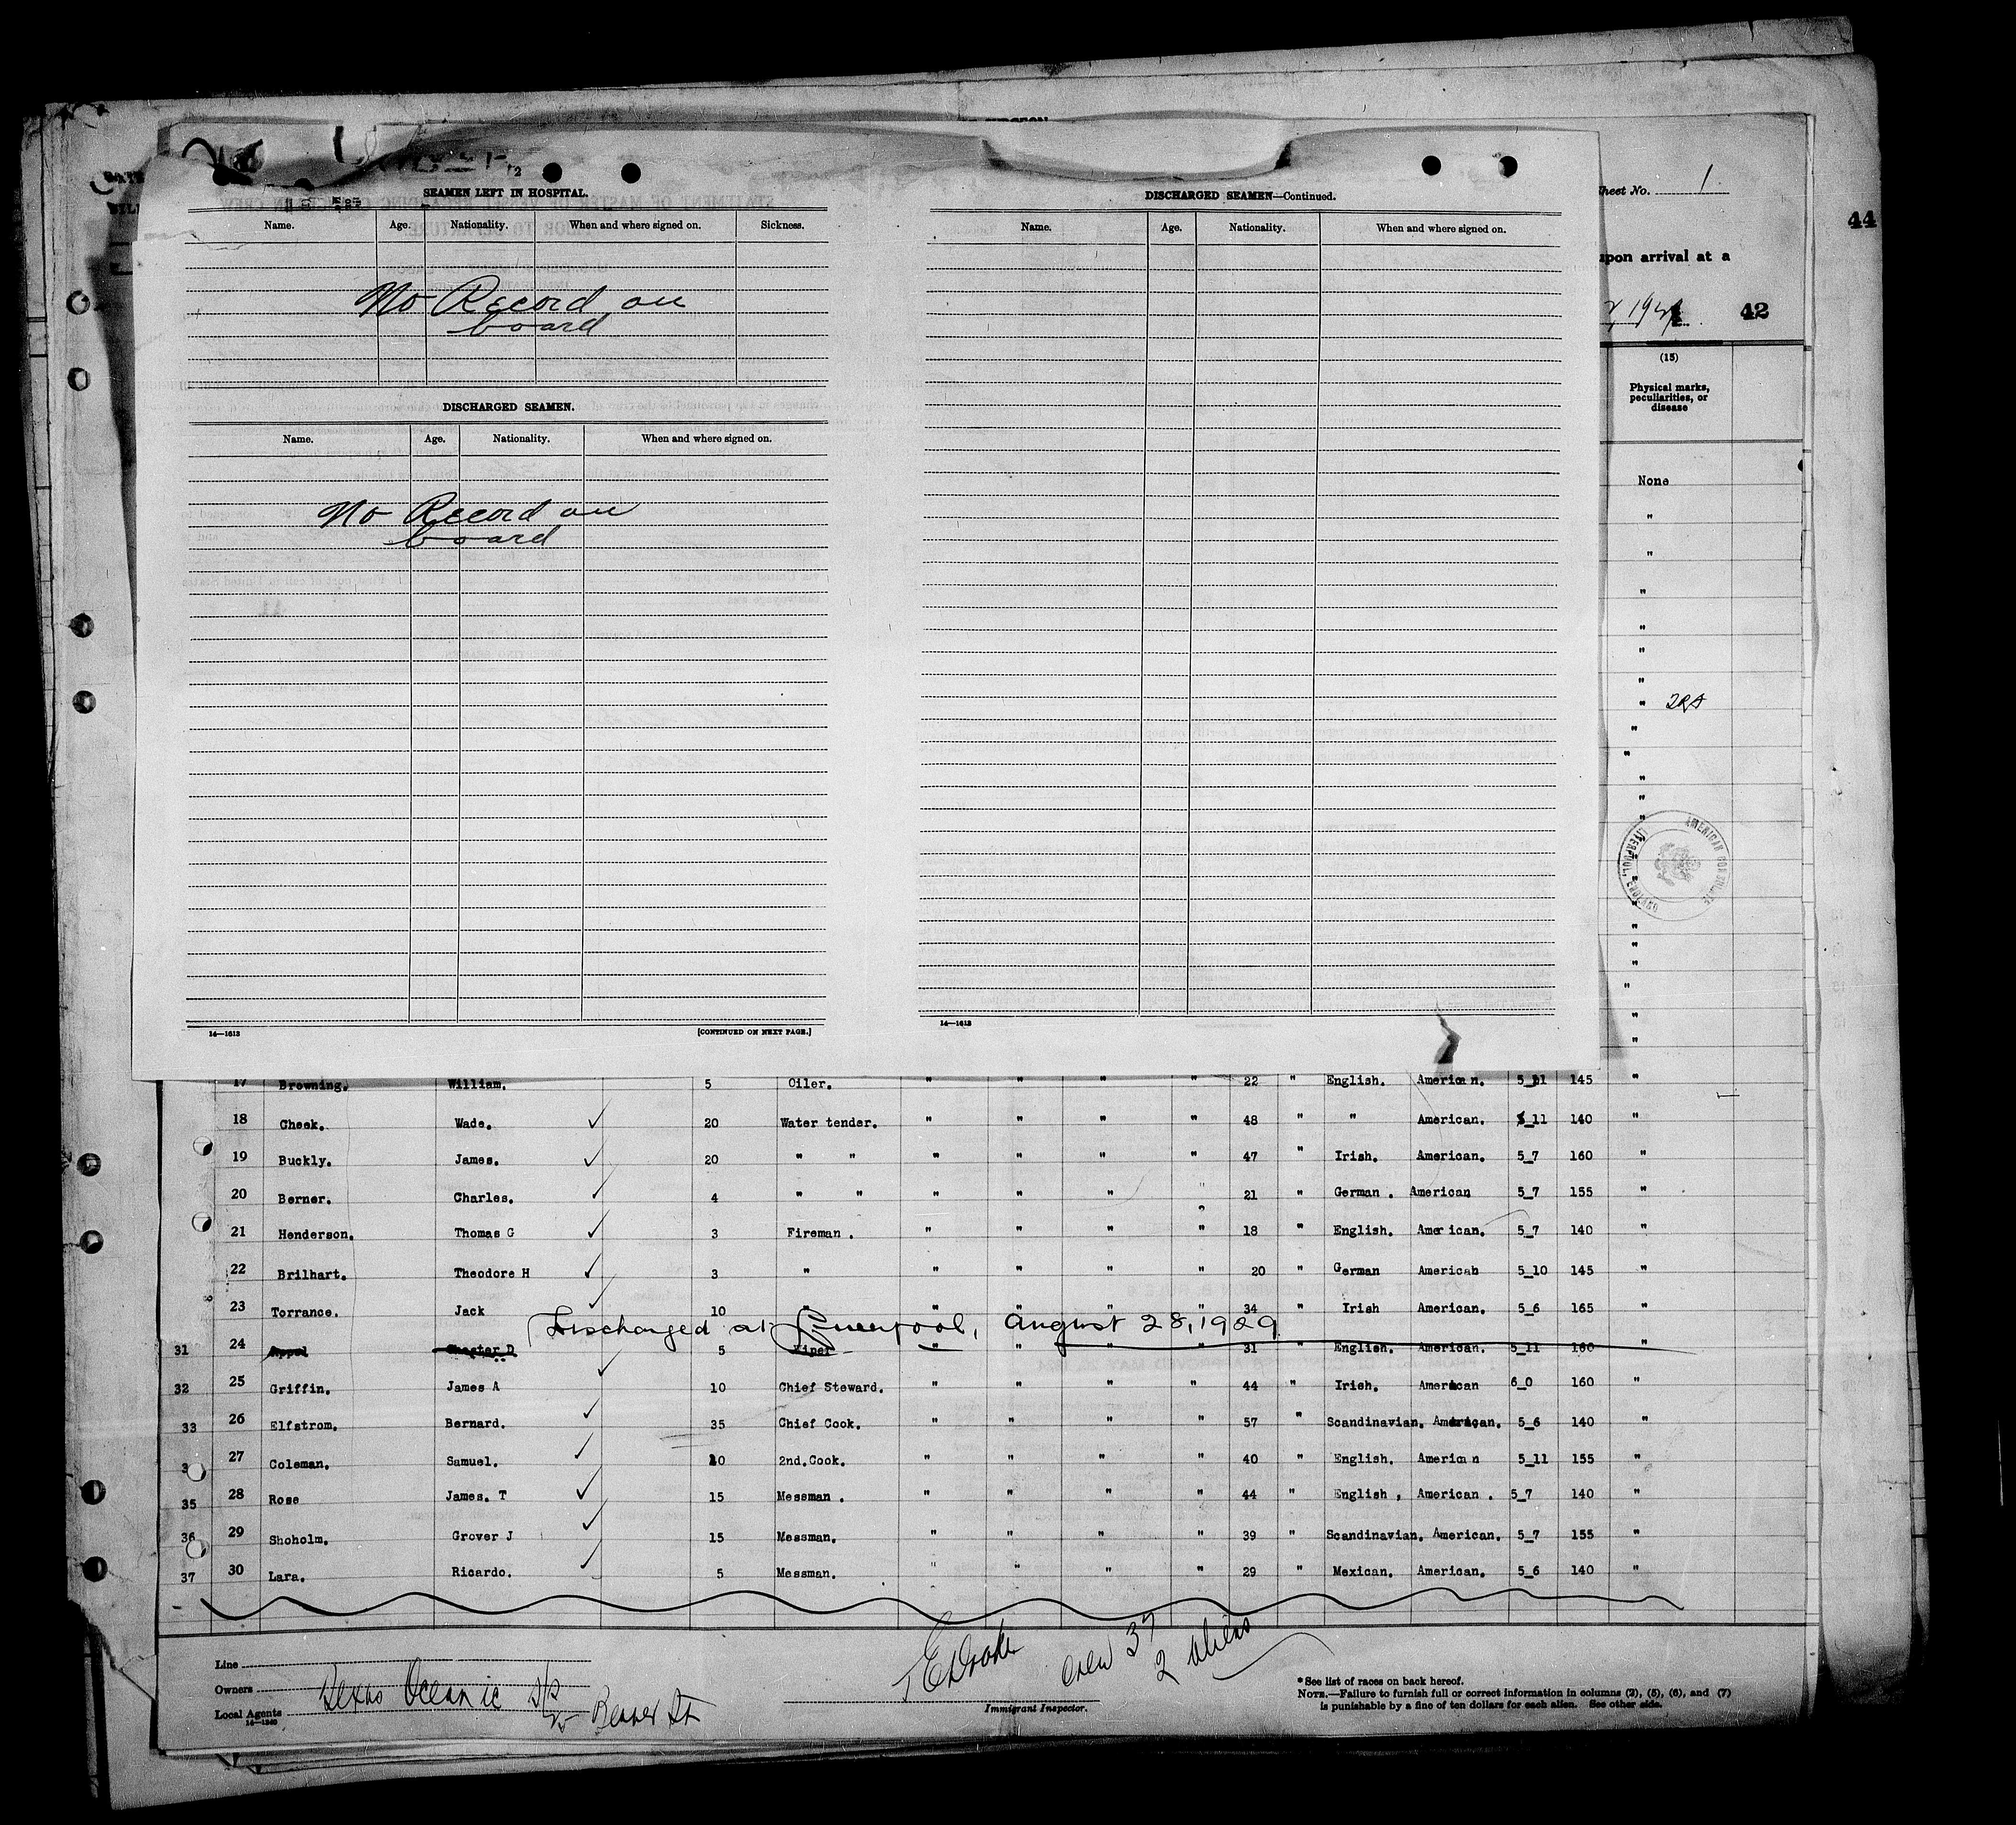 SEAMEN LEFT IN HOSPITAL.
Name. Age. Nationality. When and where signed on. Sickness.
No Record on
board
DISCHARGED SEAMEN.
Name. Age. Nationality. When and where signed on.
No Record on
board
14—1613 [CONTINUED ON NEXT PAGE.]
DISCHARGED SEAMEN—Continued.
Name. Age. Nationality. When and where signed on.
14—1613
Sheet No. 1
44
upon arrival at a
42
(15)
Physical marks,
peculiarities, or
disease
None
"
"
"
"
"
"
"
"
"
"
"
"
AMERICAN CONSULATE
LIVERPOOL, ENGLAND
17 Browning. William. 5 Oiler. " " " " 22 " English. American. 5_11 145 "
18 Cheek. Wade. ✓ 20 Water tender. " " " " 48 " " American. 5_11 140 "
19 Buckly. James. ✓ 20 " " " " " " 47 " Irish. American. 5_7 160 "
20 Berner. Charles. ✓ 4 " " " " " " 21 " German . American 5_7 155 "
21 Henderson. Thomas G ✓ 3 Fireman . " " " " 18 " English. American. 5_7 140 "
22 Brilhart. Theodore H ✓ 3 " " " " " 20 " German American 5_10 145 "
23 Torrance. Jack ✓ 10 " " " " " 34 " Irish American. 5_6 165 "
Discharged at Liverpool, August 28, 1929
31 24 Appel Chester D 5 Wiper " " " " 31 " English. American. 5_11 160 "
32 25 Griffin. James A ✓ 10 Chief Steward. " " " " 44 " Irish. American 6_0 160 "
33 26 Elfstrom. Bernard. ✓ 35 Chief Cook. " " " " 57 " Scandinavian. American. 5_6 140 "
27 Coleman. Samuel. ✓ 20 2nd.Cook. " " " " 40 " English. American 5_11 155 "
35 28 Rose James. T ✓ 15 Messman . " " " " 44 " English , American . 5_7 140 "
36 29 Shoholm. Grover J ✓ 15 Messman. " " " " 39 " Scandinavian. American. 5_7 155 "
37 30 Lara. Ricardo. ✓ 5 Messman. " " " " 29 " Mexican. American. 5_6 140 "
Line
Owners Texas Oceanic S/S
Local Agents 25 Beaver St
14—1240
crew 37
2 aliens
Immigrant Inspector.
* See list of races on back hereof.
NOTE.—Failure to furnish full or correct information in columns (2), (5), (6), and (7)
is punishable by a fine of ten dollars for each alien. See other side.